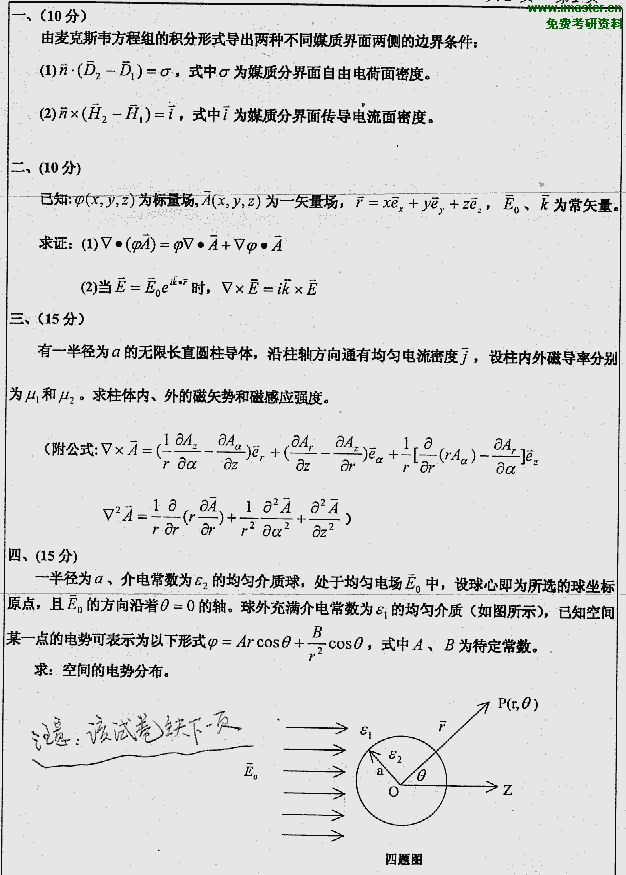 www.imaster.cn
免费考研资料
一、(10分)
由麦克斯韦方程组的积分形式导出两种不同媒质界面两侧的边界条件:
(1) n⃗·(D⃗₂ − D⃗₁) = σ，式中σ为媒质分界面自由电荷面密度。
(2) n⃗×(H⃗₂ − H⃗₁) = i⃗，式中i⃗为媒质分界面传导电流面密度。
二、(10分)
已知: φ(x, y, z)为标量场, A⃗(x, y, z)为一矢量场， r⃗ = xe⃗ₓ + ye⃗_y + ze⃗_z， E⃗₀、k⃗为常矢量。
求证: (1) ∇•(φA⃗) = φ∇•A⃗ + ∇φ•A⃗
(2)当 E⃗ = E⃗₀e^{ik⃗•r⃗} 时，∇×E⃗ = ik⃗×E⃗
三、(15分)
有一半径为a的无限长直圆柱导体，沿柱轴方向通有均匀电流密度j⃗，设柱内外磁导率分别
为μ₁和μ₂。求柱体内、外的磁矢势和磁感应强度。
（附公式: ∇×A⃗ = (1/r ∂A_z/∂α − ∂A_α/∂z)e⃗_r + (∂A_r/∂z − ∂A_z/∂r)e⃗_α + 1/r[∂/∂r(rA_α) − ∂A_r/∂α]e⃗_z
∇²A⃗ = 1/r ∂/∂r(r ∂A⃗/∂r) + 1/r² ∂²A⃗/∂α² + ∂²A⃗/∂z²）
四、(15分)
一半径为a、介电常数为ε₂的均匀介质球，处于均匀电场E⃗₀中，设球心即为所选的球坐标
原点，且E⃗₀的方向沿着θ = 0的轴。球外充满介电常数为ε₁的均匀介质（如图所示），已知空间
某一点的电势可表示为以下形式φ = Ar cosθ + B/r² cosθ，式中A、B为待定常数。
求：空间的电势分布。
注意：该试卷缺下一页
P(r, θ)
r⃗
ε₁
ε₂
E⃗₀
a
θ
O
Z
四题图